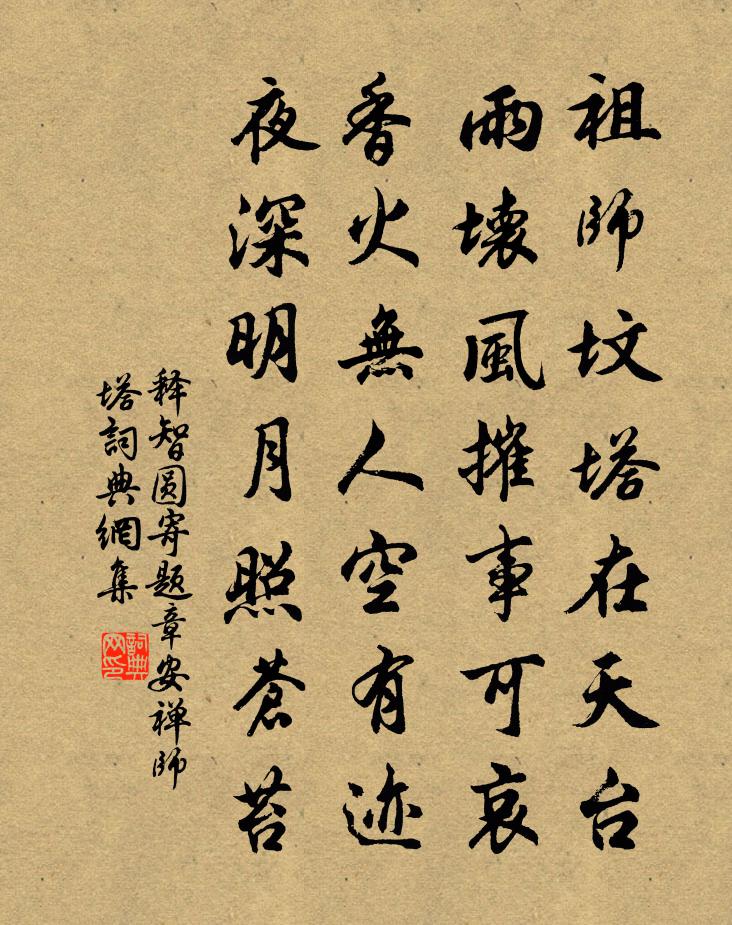 祖師坟塔在天台
雨壞風摧事可哀
香火無人空有迹
夜深明月照蒼苔
释智圆寄题章安禅师
塔詞典網集
詞典网印